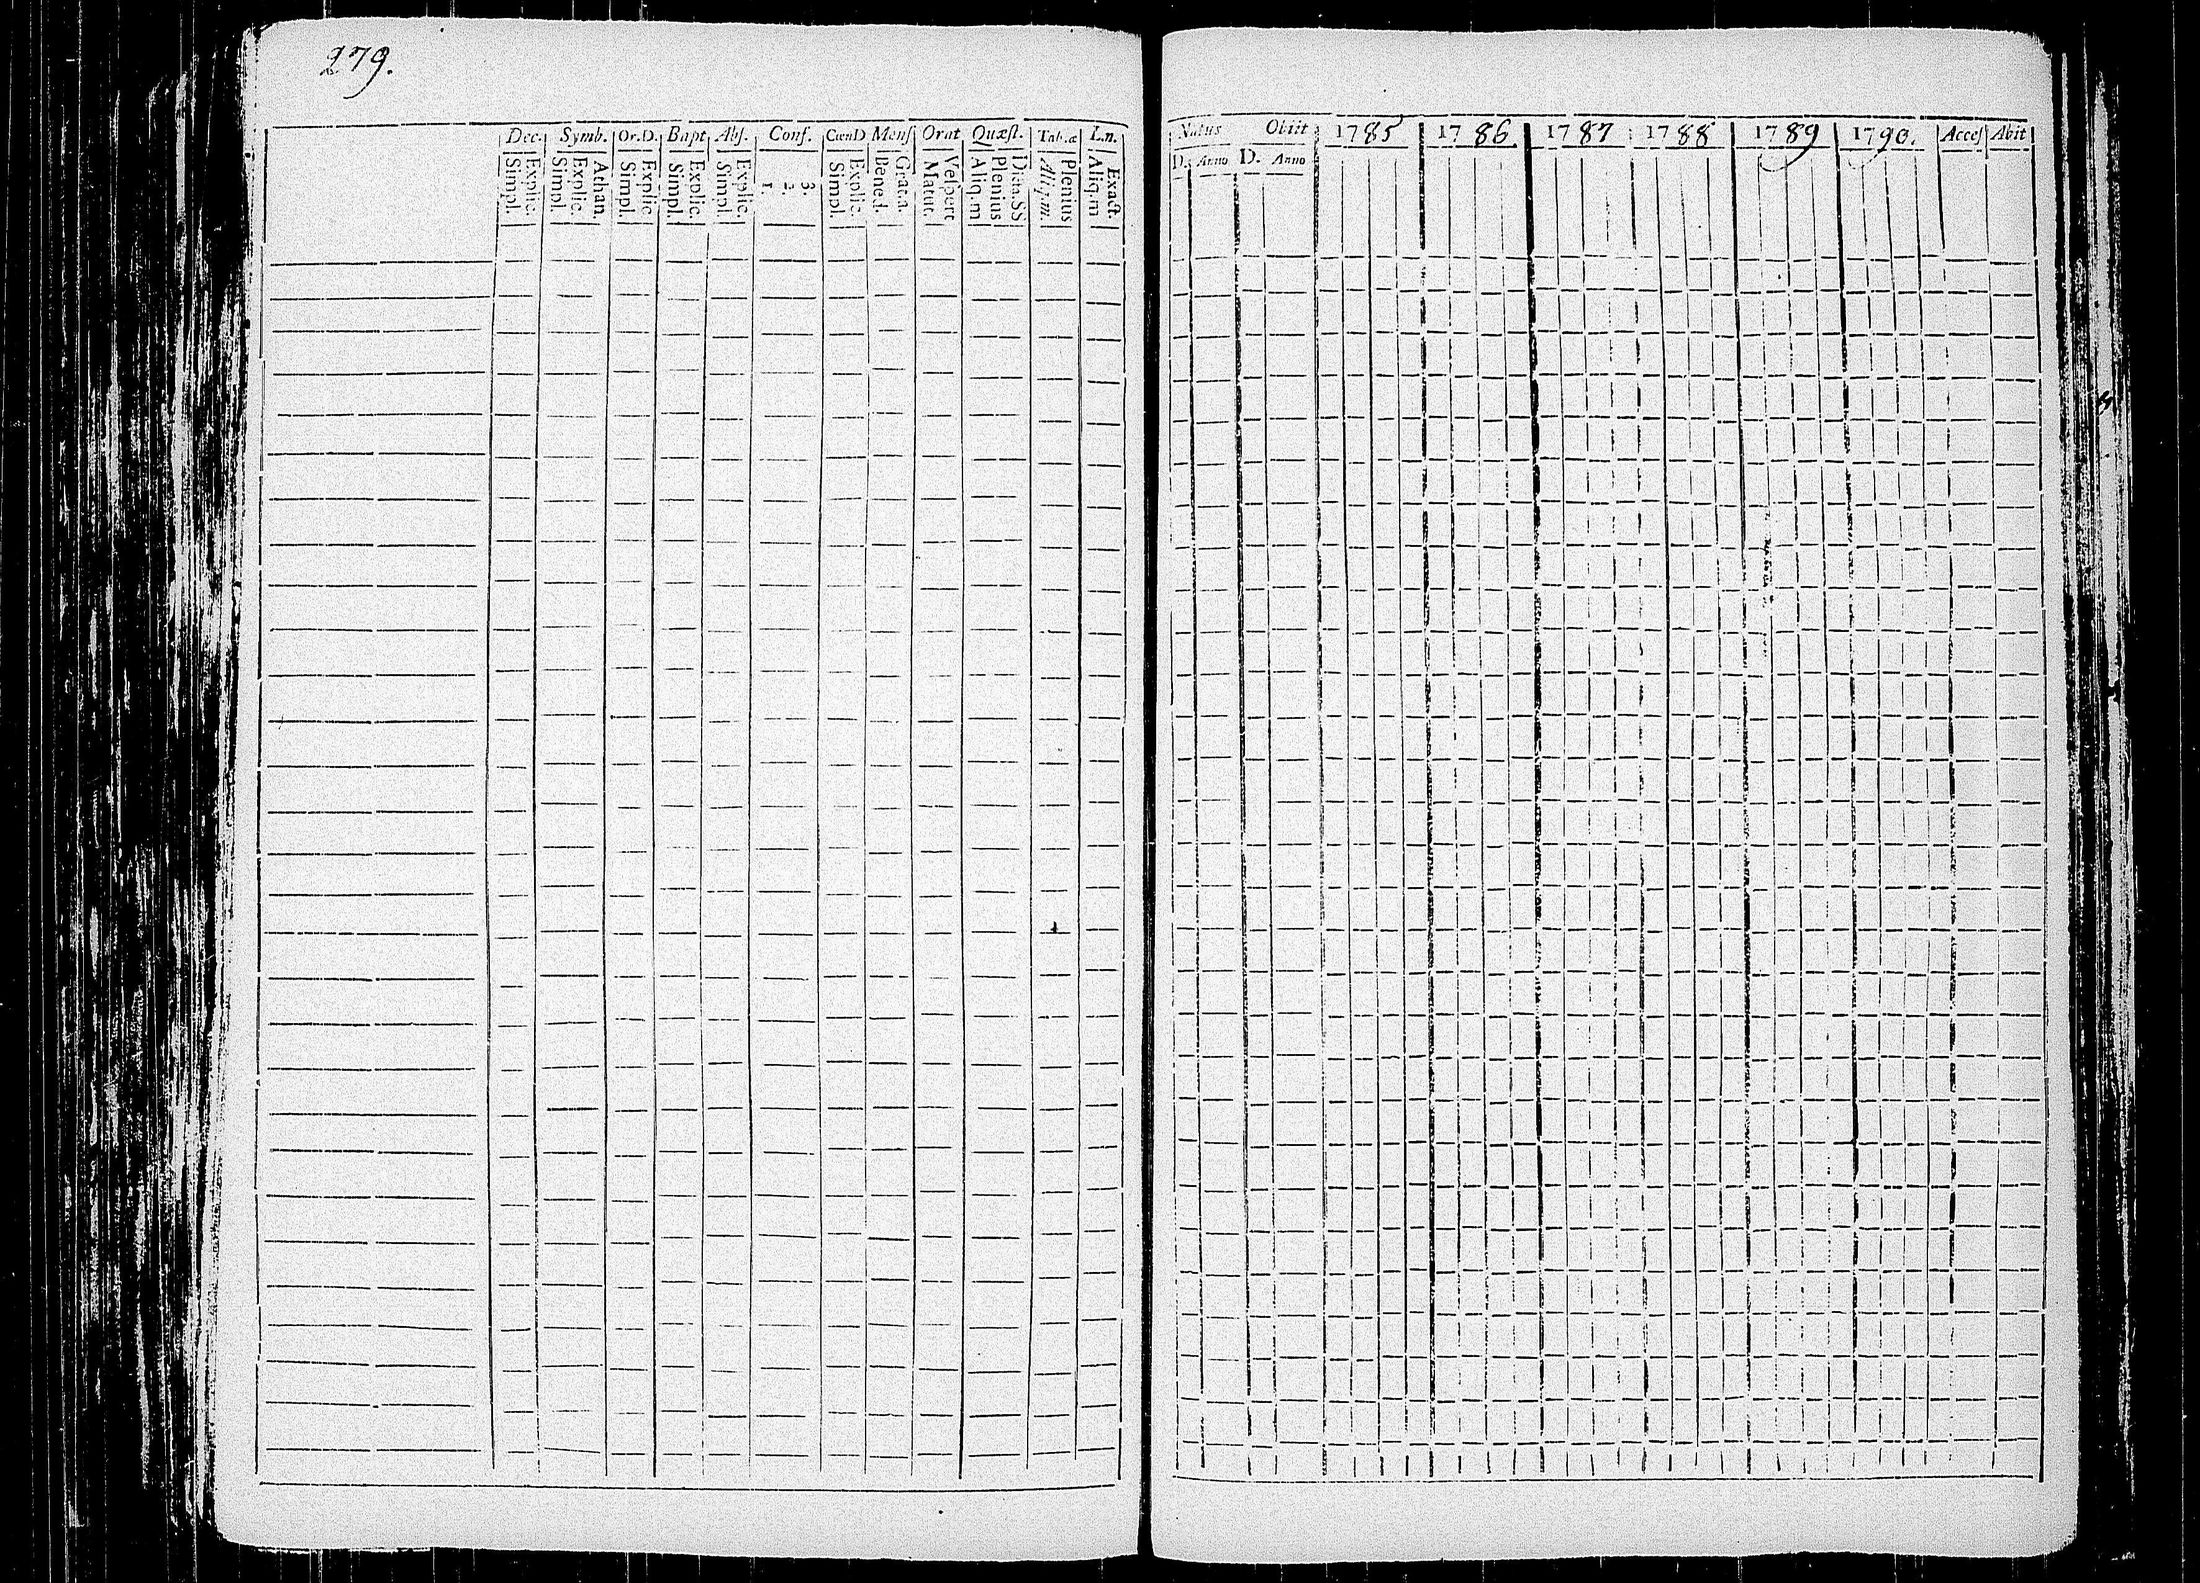 279.
Dec. Symb. Or.D. Bapt Abs. Conf. CœnD Mensſ Orat Quæſt. Tab.æ L.n.
Explic. Simpl.
Athan. Explic. Simpl.
Explic Simpl.
Explic. Simpl.
Explic. Simpl.
3. 2. 1.
Explic. Simpl.
Grat.a. Bened.
Veſpert Matut.
Dicta.SS Plenius Aliq.m
Plenius Aliq.m.
Exact. Aliq.m
Natus Obiit 1785 1786. 1787 1788 1789 1790. Acceſ Abit
D. Anno D. Anno